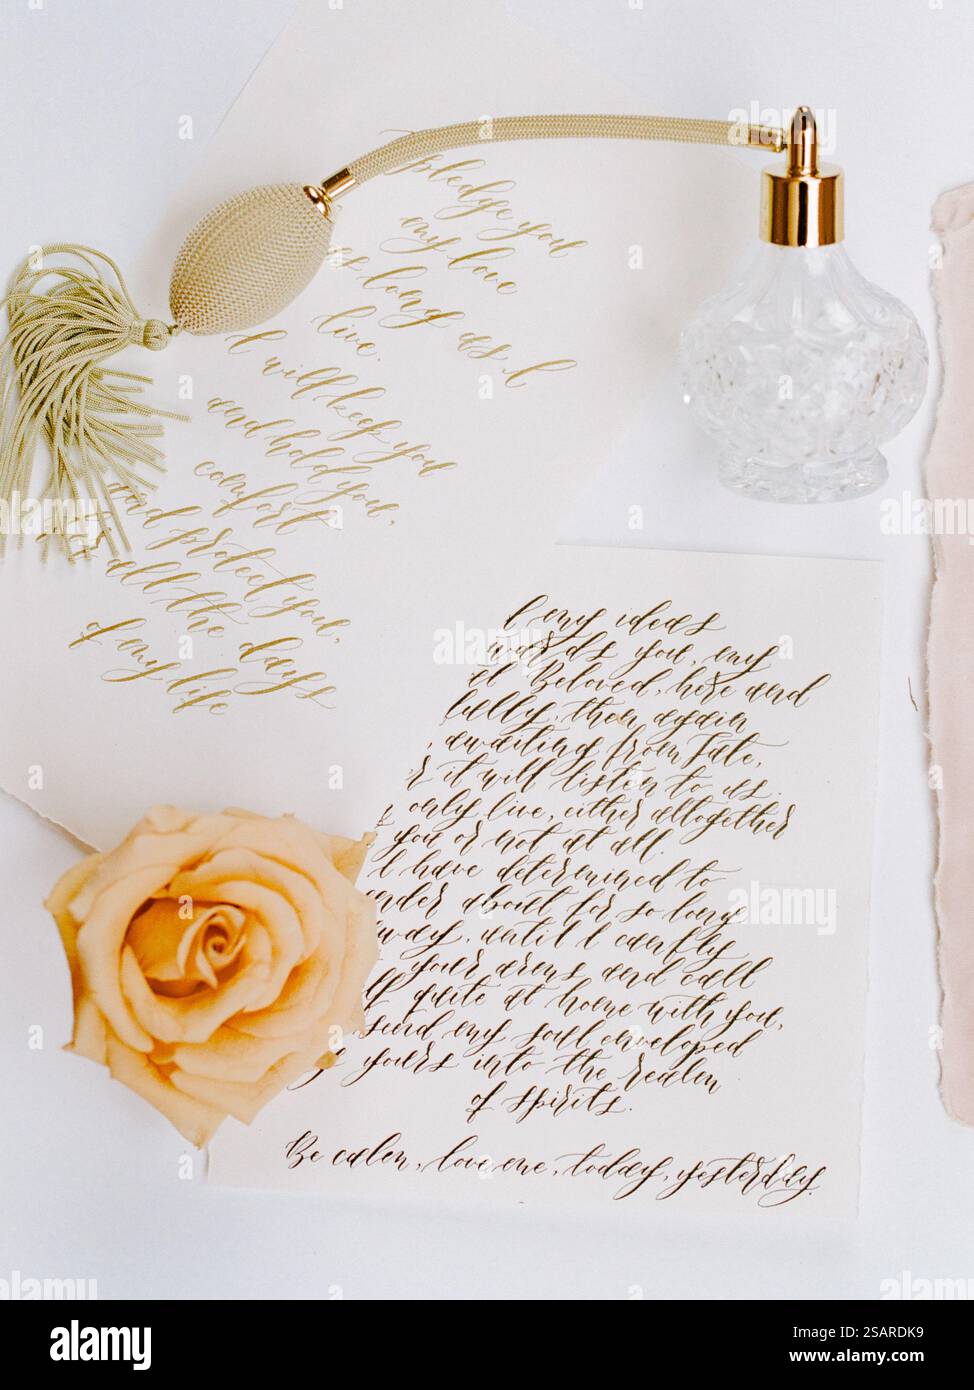 pledge you
my love
as long as I
live.
I will keep you
and hold you,
comfort
and protect you,
for all the days
of my life
my ideas
wards you, my
Beloved, here and
fully, then again
, awaiting from Fate,
r it will listen to us.
only live, either altogether
you or not at all.
I have determined to
nder about for so long
away, until I can fly
your arms and call
lf quite at home with you,
send my soul enveloped
yours into the realm
of spirits.
Be calm, love me, today, yesterday.
alamy
Image ID: 2SARDK9
www.alamy.com